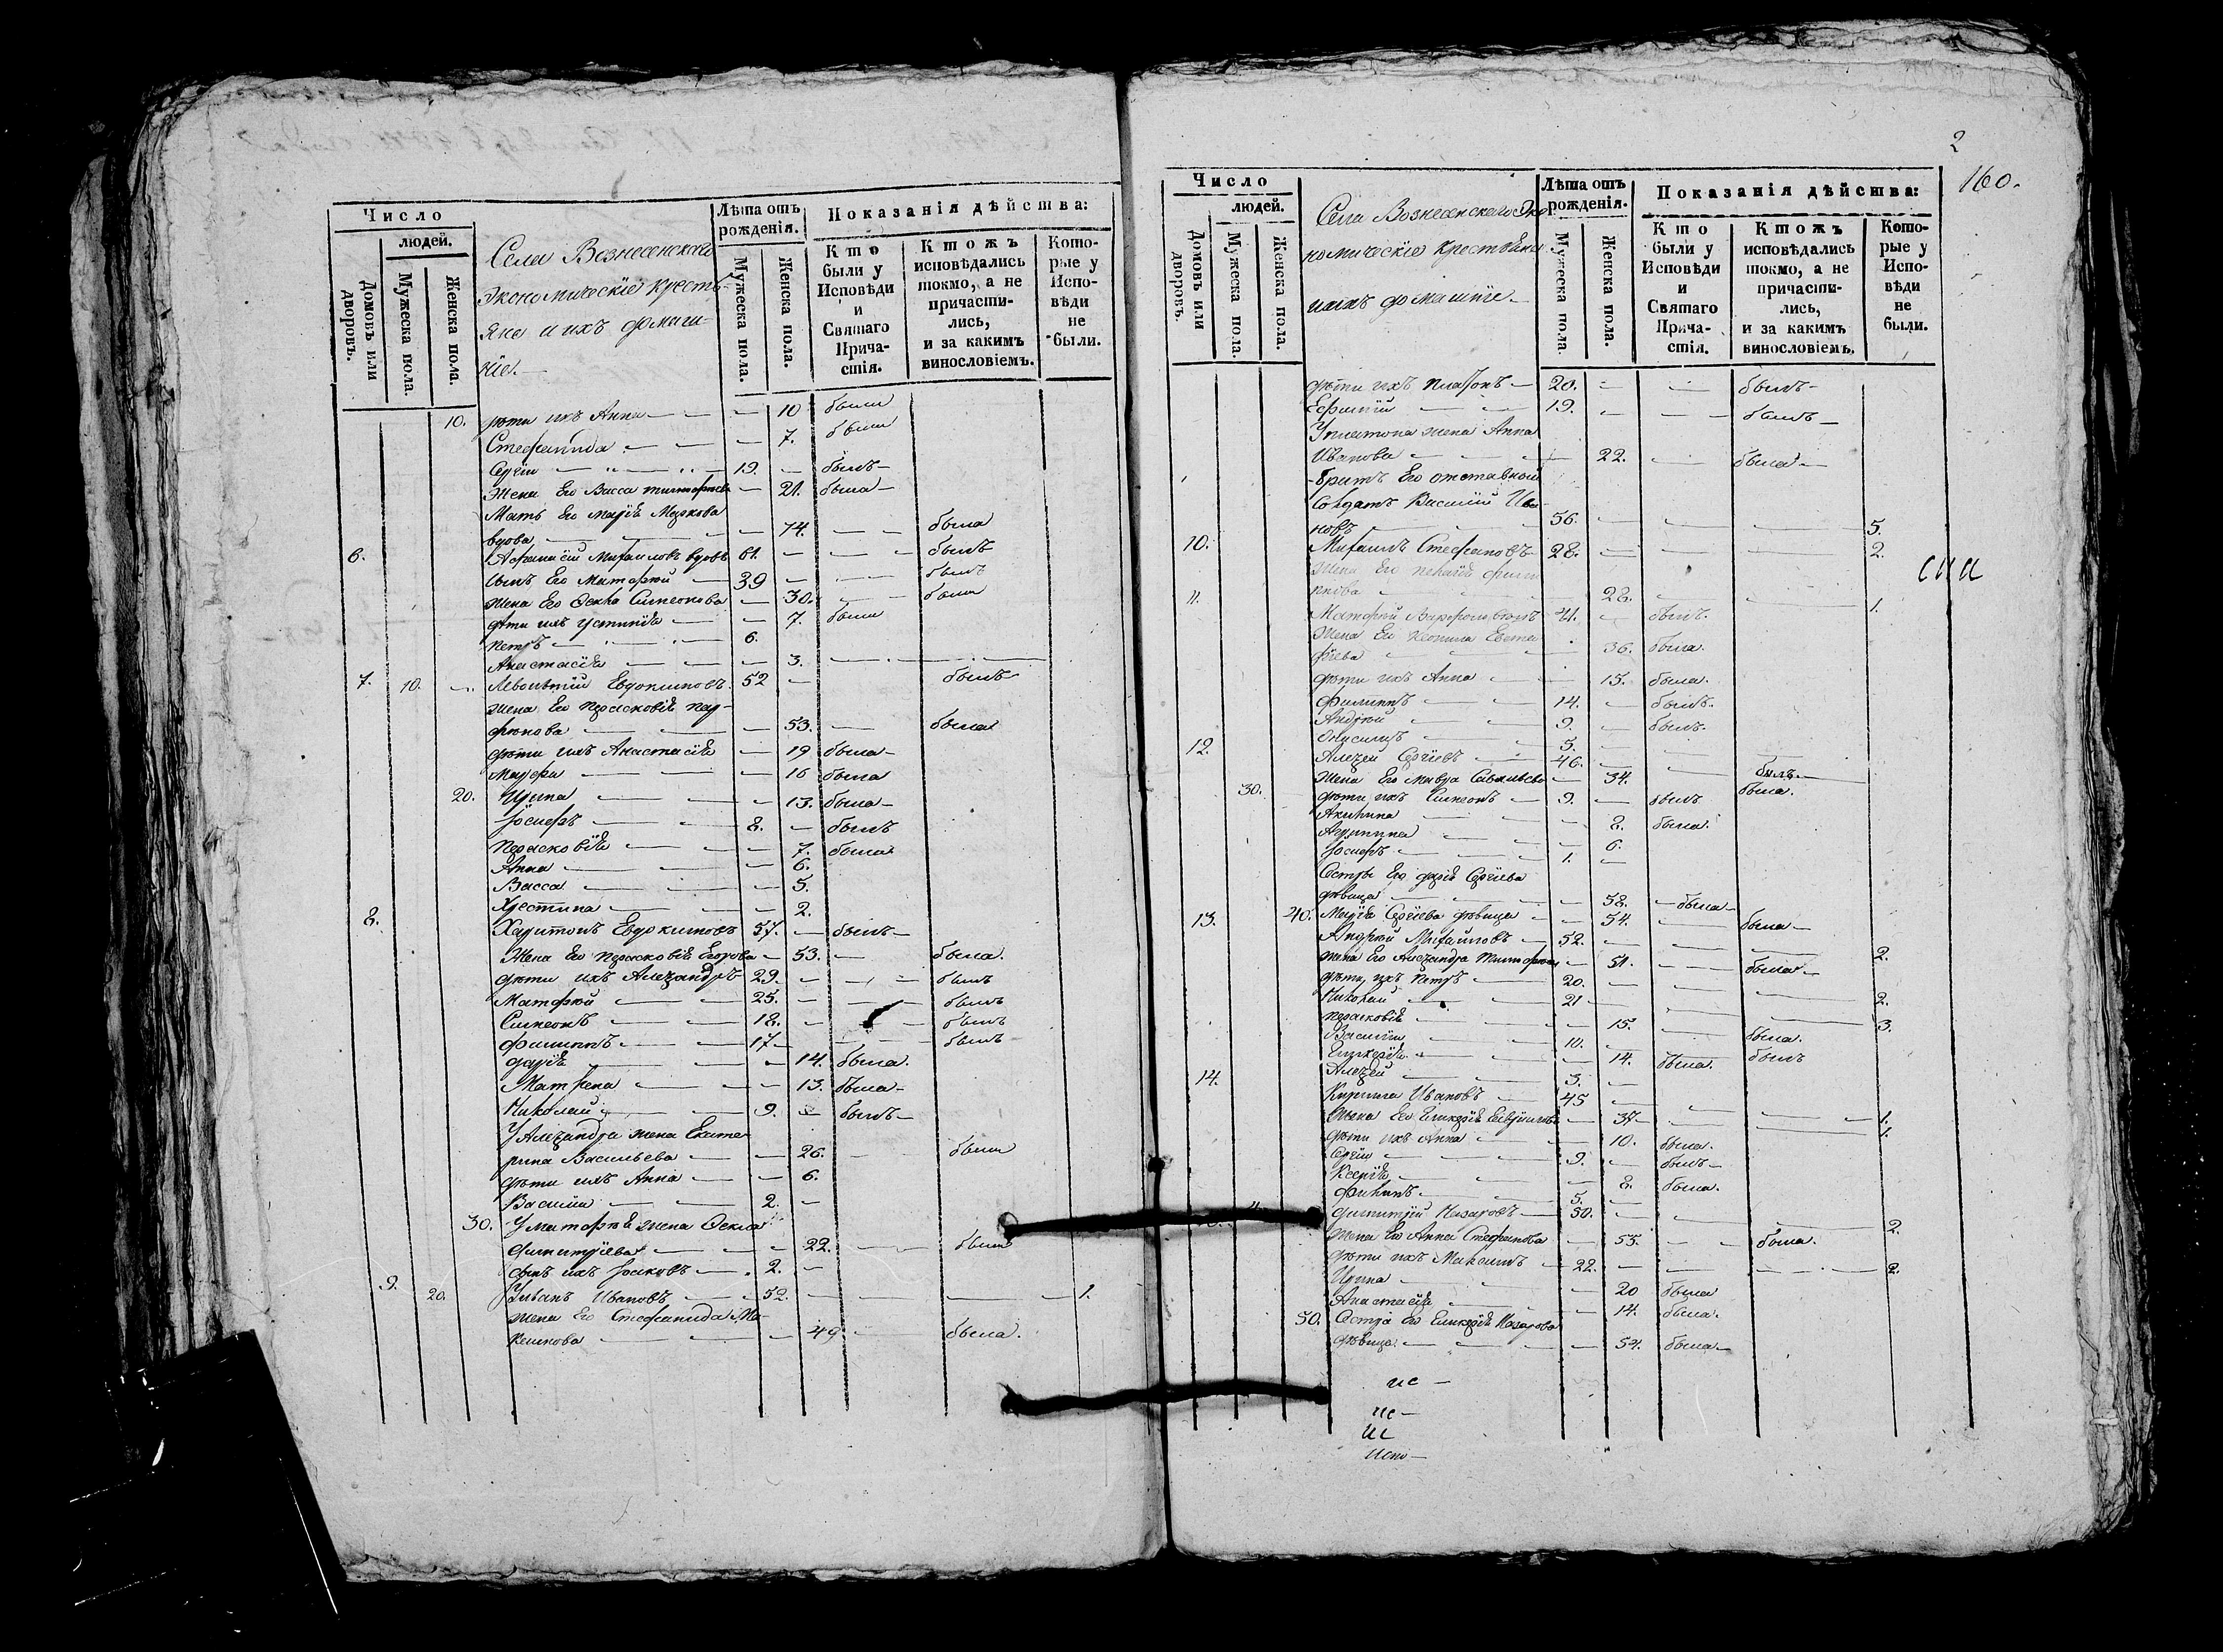 Число
людей.
Домовъ или дворовъ.
Мужеска пола.
Женска пола.
Села Вознесенскаго
Экономическіе кресть-
яне и ихъ
Лѣта отъ рожденія.
Мужеска пола.
Женска пола.
Показанія дѣйства:
Кто были у Исповѣди и Святаго Прича-стія.
Ктожъ исповѣдались токмо, а не причасти-лись, и за какимъ винословіемъ.
Кото-рые у Испо-вѣди не были.
10. дѣти ихъ Анна — — 10 была
Стефанида — — 7. была
Сергій — — 19. — былъ —
Жена Его Васса — 21. была —
Мать Его Марія Маркова
вдова — — 74. — — была
6. Афанасій Михаиловъ вдовъ 61. — — былъ
сынъ Его Матфей — 39 — — былъ
жена Его Оекла Симеонова — 30. — была
дѣти ихъ Устинія — — 7. была
Петръ — — 6.
Анастасія — — 3. — —
7. 10. Леонтій Евдокимовъ. 52 — былъ
жена Его Парасковія Пар-
фенова — — 53. — была
дѣти ихъ Анастасія — 19 была —
Марфа — — 16 была
20. Ирина — — 13. была —
Іосифъ — — 8. — былъ
Парасковія — — 7. была
Анна — — 6.
Васса — — 5.
Христина — — 2.
8. Харитонъ Евдокимовъ 57. — былъ —
Жена Его Парасковія Егорова — 53. — была.
дѣти ихъ Александръ 29. — — былъ
Матфей — — 25. — — былъ
Симеонъ — — 18. — — былъ
Филиппъ — — 17 — — былъ
Дарія — — 14. была.
Матрена — — 13. была —
Николай — — 9. — былъ —
У Александра жена Екате-
рина Васильева — — 26. — была
дѣти ихъ Анна — — 6.
Василій — — 2. —
30. У Матфея жена Оекла
Димитріева — — 22. — была
сынъ ихъ Іаковъ — 2. —
9. 20. Иванъ Ивановъ — 52. — — — 1.
жена Его Стефанида Ма-
ксимова — — 49 — была.
2
160.
Число
людей.
Домовъ или дворовъ.
Мужеска пола.
Женска пола.
Села Вознесенскаго Эко-
номическіе крестьяне
Лѣта отъ рожденія.
Мужеска пола.
Женска пола.
Показанія дѣйства:
Кто были у Исповѣди и Святаго Прича-стія.
Ктожъ исповѣдались токмо, а не причасти-лись, и за какимъ винословіемъ.
Кото-рые у Испо-вѣди не были.
дѣти ихъ Платонъ — 20. — — былъ —
Ефимій — — 19. — — былъ —
У Платона жена Анна
Иванова — — 22. — была —
братъ Его отставной
Солдатъ Василій Ива-
новъ — — 56. — — — 5.
10. Михаилъ Стефановъ 28. — — — 2.
жена Его Пелагія Филип
пова — — 28. — — 1.
11. Матфей Варфоломѣевъ 41. — былъ.
Жена Его
— 36. была.
дѣти ихъ Анна — — 15. была.
Филиппъ — — 14. — былъ.
Андрей — — 9. — былъ.
Онисимъ — — 5. —
12. Алексѣй Сергіевъ — 46. — — былъ —
Жена Его Мавра Савельева — 34. — была.
30. дѣти ихъ Симеонъ — 9. — былъ
Акилина — — 8. была.
Агрипина — — 6.
Іосифъ — — 1. —
Сестры Его Дарія Сергіева
дѣвица — — 58. — была —
40. Марія Сергіева дѣвица — 54. — была —
13. Андрей Михаиловъ — 52. — — — 2.
жена Его Александра — 51. — была —
дѣти ихъ Петръ — 20. — — — 2.
Николай — — 21 — — — 3.
Парасковія — — 15. — была.
Василій — — 10. — былъ
Гликерія — — 14. была.
Алексѣй — — 3. —
14. Кирилла Ивановъ — 45 — — — 1.
Жена Его Гликерія — 37 — — 1.
дѣти ихъ Анна — — 10. была.
Сергій — — 9. — былъ —
Ксенія — — 8. была.
Филипъ — — 5. —
Димитрій Назаровъ — 50. — — — 2.
жена Его Анна Стефанова — 53. — — была.
дѣти ихъ Максимъ — 22. — — — 2.
Ирина — — 20 была
Анастасія — — 14. была.
50. Сестра Его Гликерія Назарова
дѣвица — — 54. была —
сии
ис —
ис —
ис
испо —